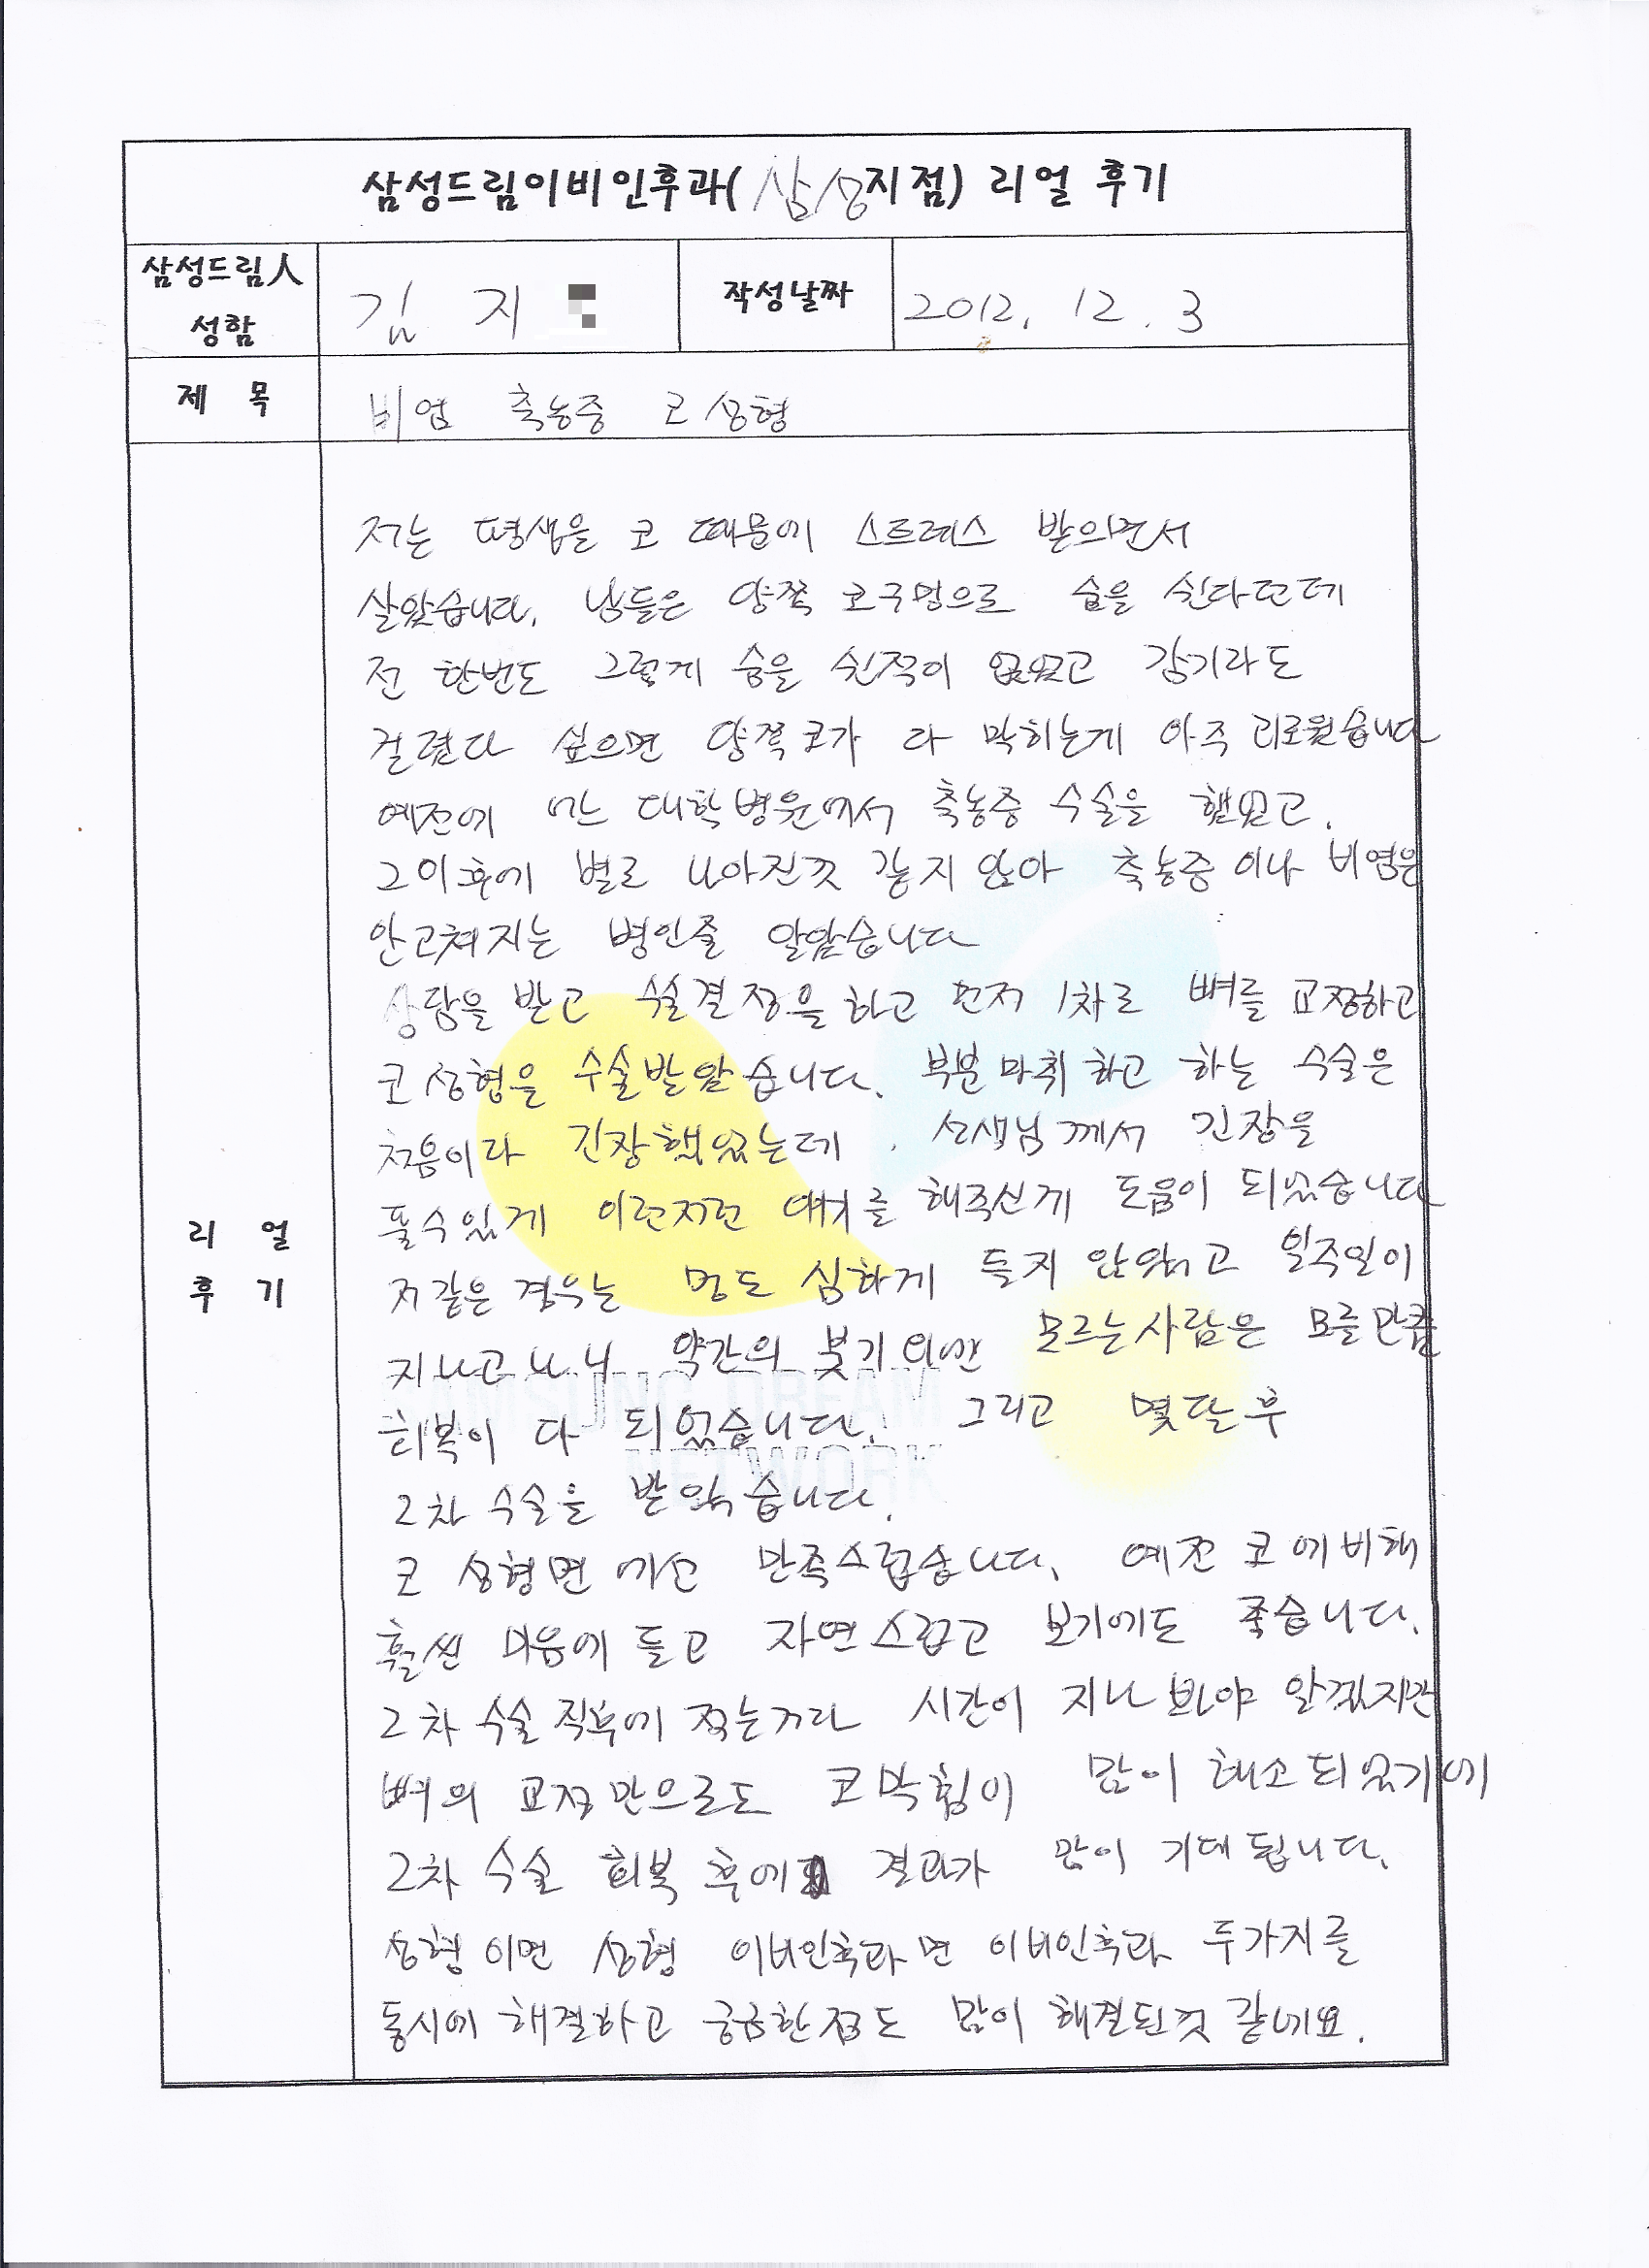 삼성드림이비인후과(삼성지점) 리얼 후기
삼성드림人 성함 김 지 작성날짜 2012. 12. 3
제 목 비염 축농증 코 성형
리 얼 후 기
저는 평생을 코 때문에 스트레스 받으면서
살았습니다. 남들은 양쪽 코구멍으로 숨을 쉰다던데
전 한번도 그렇게 숨을 쉰적이 없었고 감기라도
걸렸다 싶으면 양쪽코가 다 막히는게 아주 괴로웠습니다
예전에 어느 대학병원에서 축농증 수술을 했었고.
그이후에 별로 나아진것 같지 않아 축농증이나 비염은
안고쳐지는 병인줄 알았습니다
상담을 받고 수술결정을 하고 먼저 1차로 뼈를 교정하고
코 성형을 수술받았습니다. 부분마취 하고 하는 수술은
처음이라 긴장했었는데. 선생님께서 긴장을
풀수있게 이런저런 얘기를 해주신게 도움이 되었습니다
저같은 경우는 멍도 심하게 들지 않았고 일주일이
지나고나니 약간의 붓기외엔 모르는사람은 모를만큼
회복이 다 되었습니다. 그리고 몇달후
2차 수술을 받았습니다.
코 성형면에선 만족스럽습니다. 예전 코에비해
훨씬 마음에 들고 자연스럽고 보기에도 좋습니다.
2차 수술직후에 적는거라 시간이 지나봐야 알겠지만
뼈의 교정만으로도 코막힘이 많이 해소되었기에
2차 수술 회복 후에 결과가 많이 기대됩니다.
성형이면 성형 이비인후과면 이비인후과 두가지를
동시에 해결하고 궁금한점도 많이 해결된것 같네요.
SAMSUNG DREAM
NETWORK